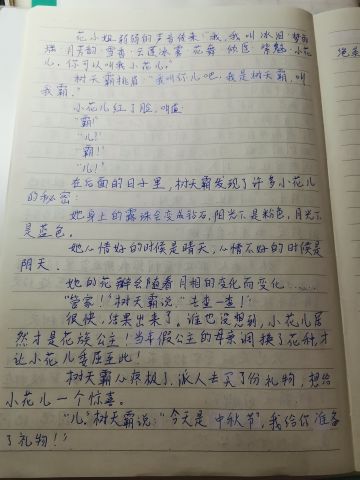 花小姐娇弱的声音传来："我,我叫冰泪·梦雨
璃·月芳韵·雪香·云莲冰雾·花舞·倾医·紫魅·小花
儿,你可以叫我小花儿。"
树天霸挑眉："我叫你儿吧,我是树天霸,叫
我霸。"
小花儿红了脸,叫道：
"霸!"
"儿!"
"霸!"
"儿!"
在后面的日子里,树天霸发现了许多小花儿
的秘密：
她身上的露珠会变成钻石,阳光下是粉色,月光下
是蓝色。
她心情好的时候是晴天,心情不好的时候是
阴天。
她的花瓣会随着月相的变化而变化……
"管家!"树天霸说,"去查一查!"
很快,结果出来了。谁也没想到,小花儿居
然才是花族公主!当年假公主的母亲调换了花籽,才
让小花儿委屈至此!
树天霸心疼极了,派人去买了份礼物,想给
小花儿一个惊喜。
"儿。"树天霸说："今天是中秋节",我给你准备
了礼物!"